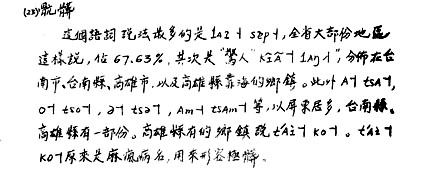 (23)骯髒
這個語詞說法最多的是 lAz˧ sɐp˧,全省大部份地區
這樣說,佔67.63%,其次是“驚人”kɪÃ˥ lAŋ˧”,分佈在台
南市、台南縣、高雄市,以及高雄縣靠海的鄉鎮。此外 A˧ tsA˥,
o˧ tso˧, ə˧ tsə˧, Am˧ tsAm˧ 等,以屏東居多,台南縣、
高雄縣有一部份。高雄縣有的鄉鎮說 t'Ai˥ ko˧。t'Ai˥
ko˧ 原來是痳瘋病名,用來形容極髒。